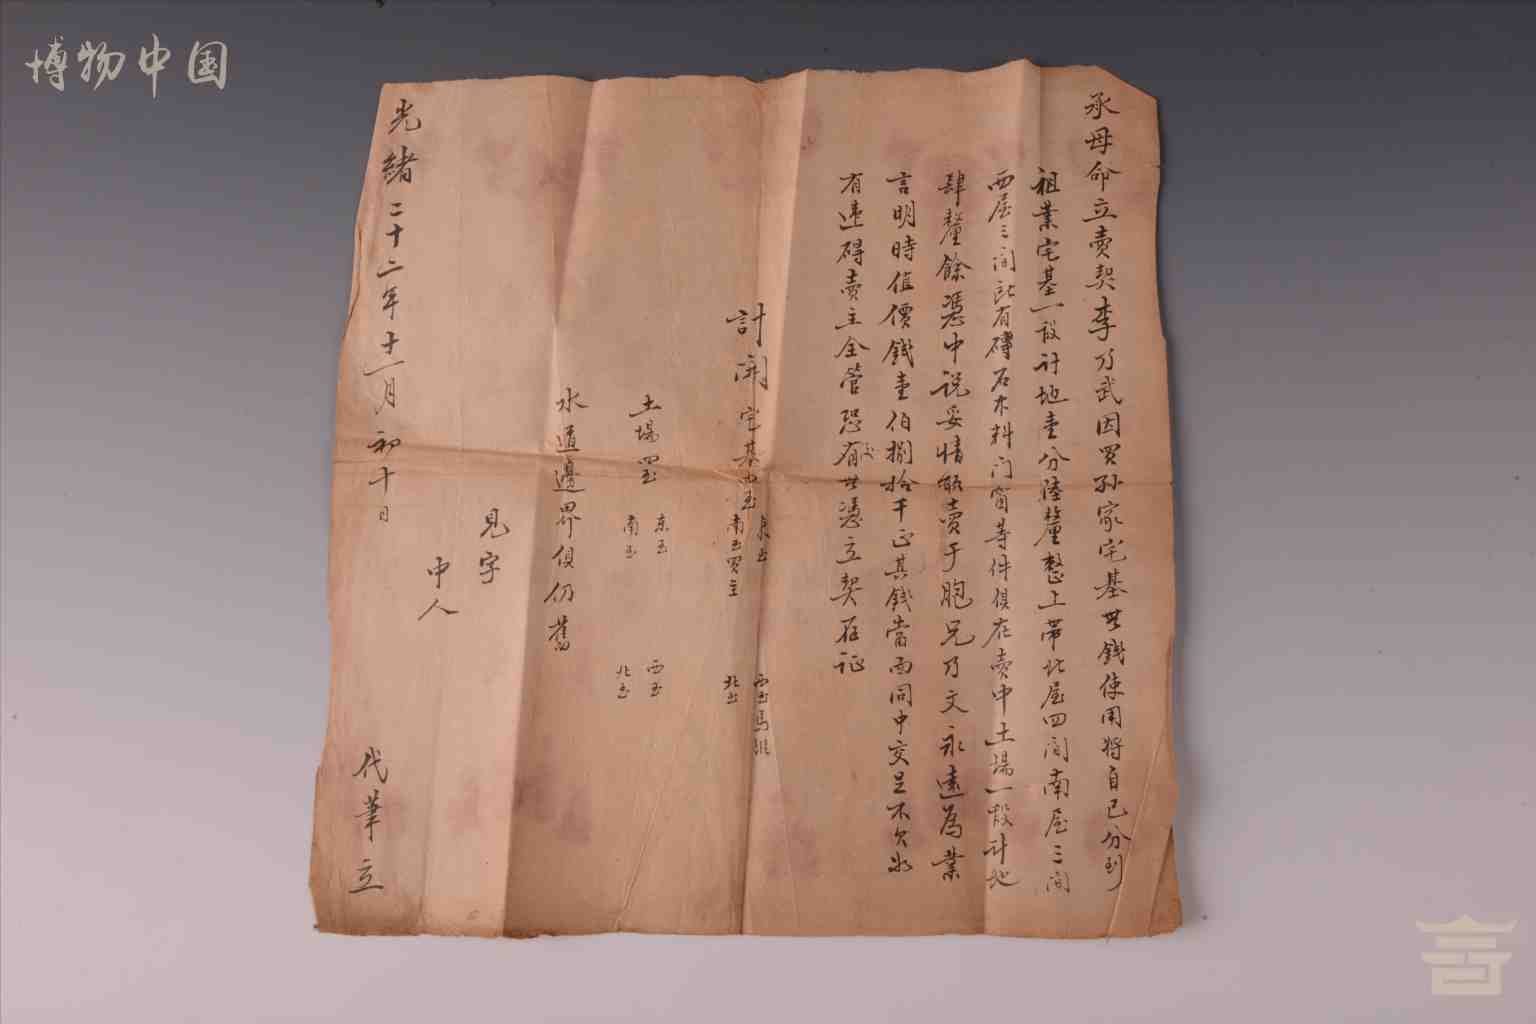 博物中国
承母命立卖契李乃武因买孙家宅基無錢使用将自己分到
祖業宅基一段计地壹分陸釐整上带北屋四间南屋三间
西屋三间所有磚石木料门窗等件俱在賣中土場一段计地
肆釐餘憑中说妥情願賣于胞兄乃文永遠為業
言明時值價錢壹伯捌拾千正其錢當面同中交足不欠如
有违碍賣主全管恐後有無憑立契存证
計開宅基四至
東至
西至馬姓
南至買主
北至
土場四至
东至
西至
南至
北至
水道邊界俱仍舊
見字
中人
光緒二十二年十一月初十日
代筆立